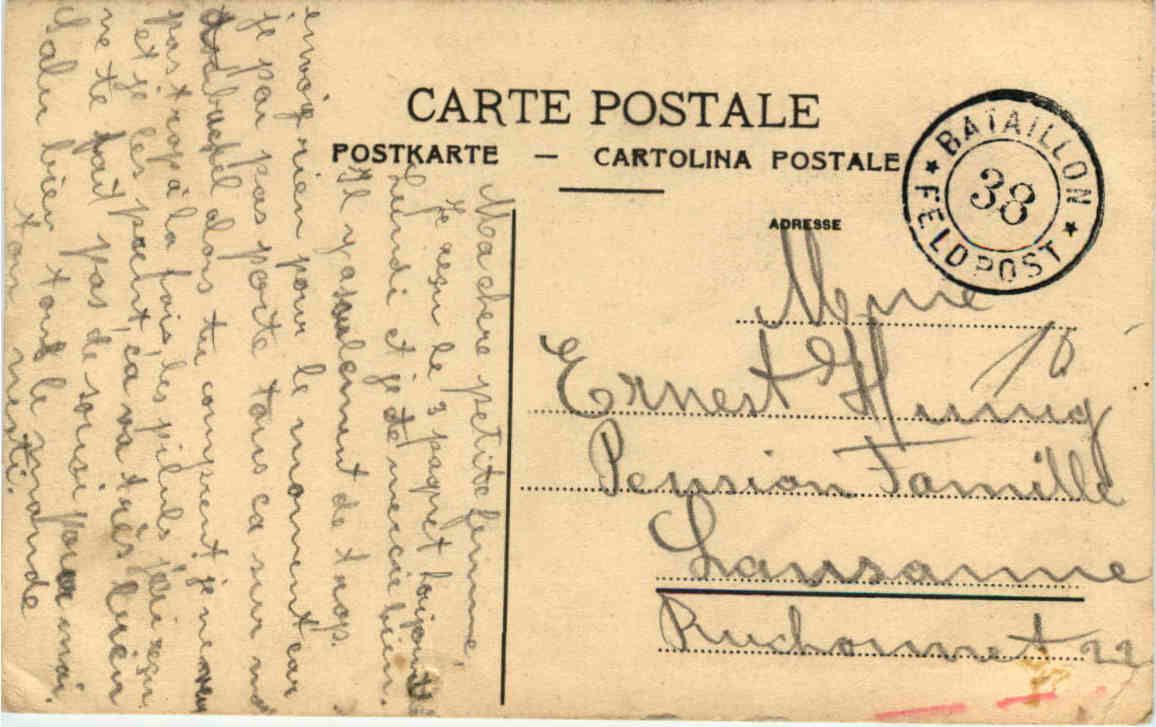 CARTE POSTALE
POSTKARTE — CARTOLINA POSTALE
ADRESSE
BATAILLON
38
FELDPOST
Mme
Ernest Hunig
18
Pension Famille
Lausanne
Ruchonnet 22
Ma chere petite femme,
Je resu le 3 paquet
Lundi et je te mercie bien.
Il y a seulement de trop.
envoi rien pour le moment car
je pai pas porte tous ca sur mo
alors tu comprent je ne veu
pas trop à la fois les pilules j'ai resu
et je les prent, ça va très bien
ne te fait pas de sousi pour moi.
Salu bien tous le monde
ton